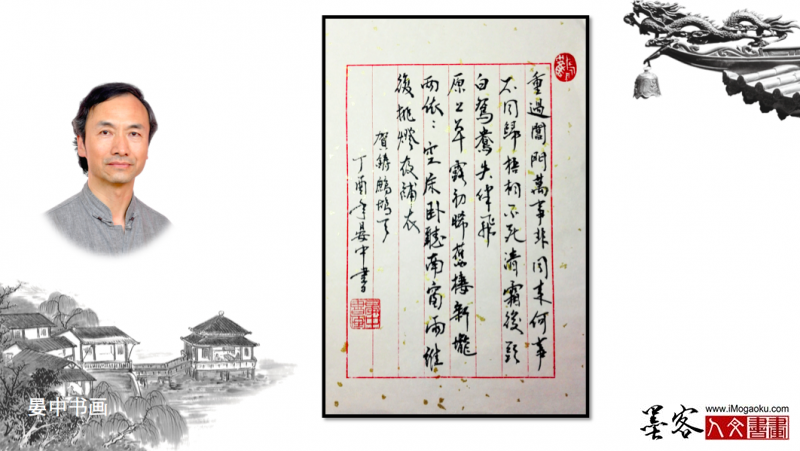 重過閶門萬事非同來何事
不同歸梧桐半死清霜後頭
白鴛鴦失伴飛
原上草露初晞舊棲新壠
兩依〻空床卧聽南窗雨誰
復挑燈夜補衣
賀鑄鷓鴣天
丁酉年晏中書
晏中书画
墨客
www.iMogaoku.com
人文書畫